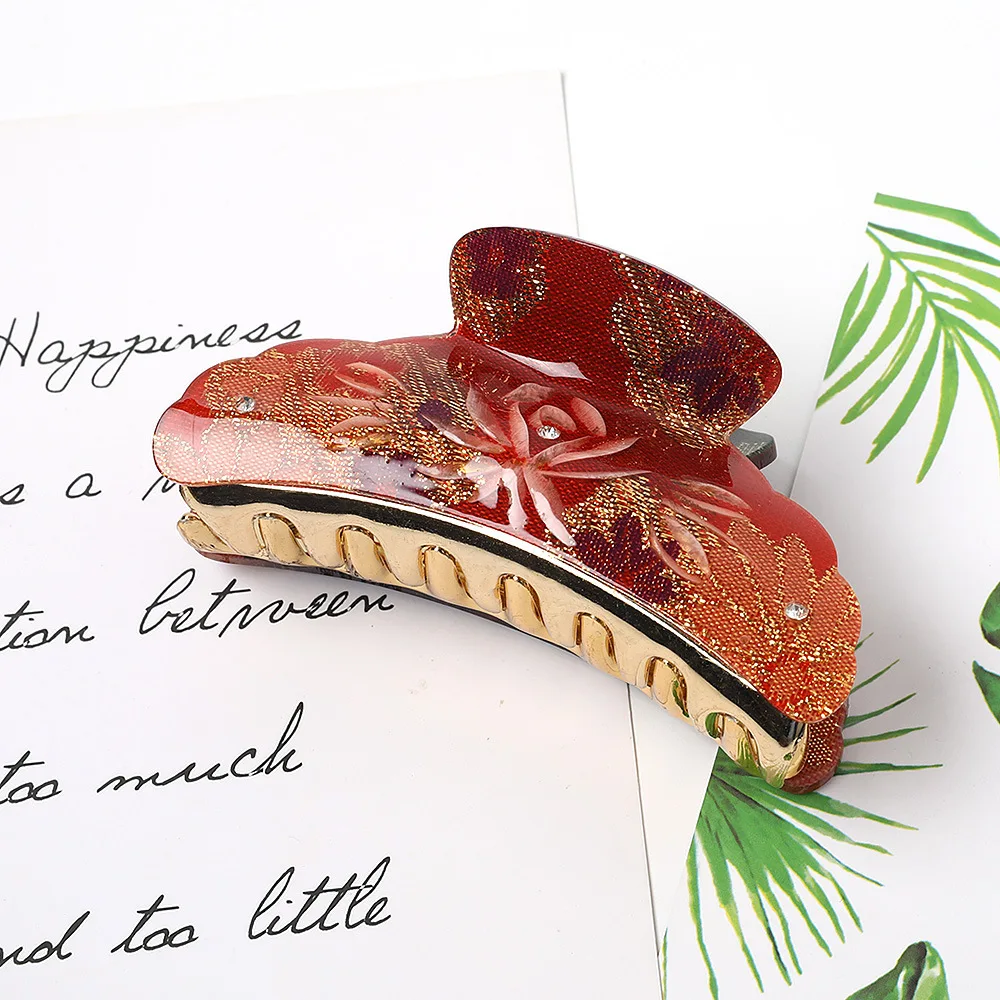 Happiness
s a
tion between
too much
nd too little